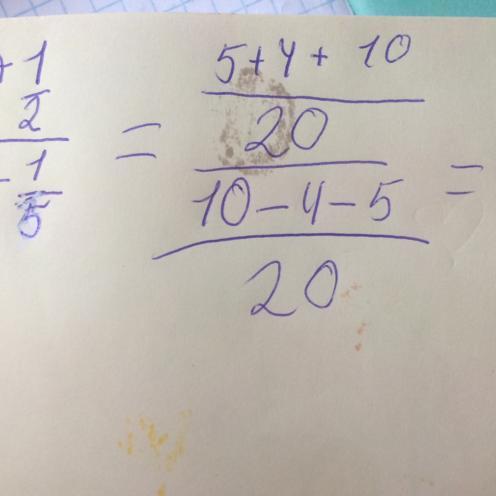 + 1/2 / - 1/5 = (5+4+10)/20 / (10-4-5)/20 =